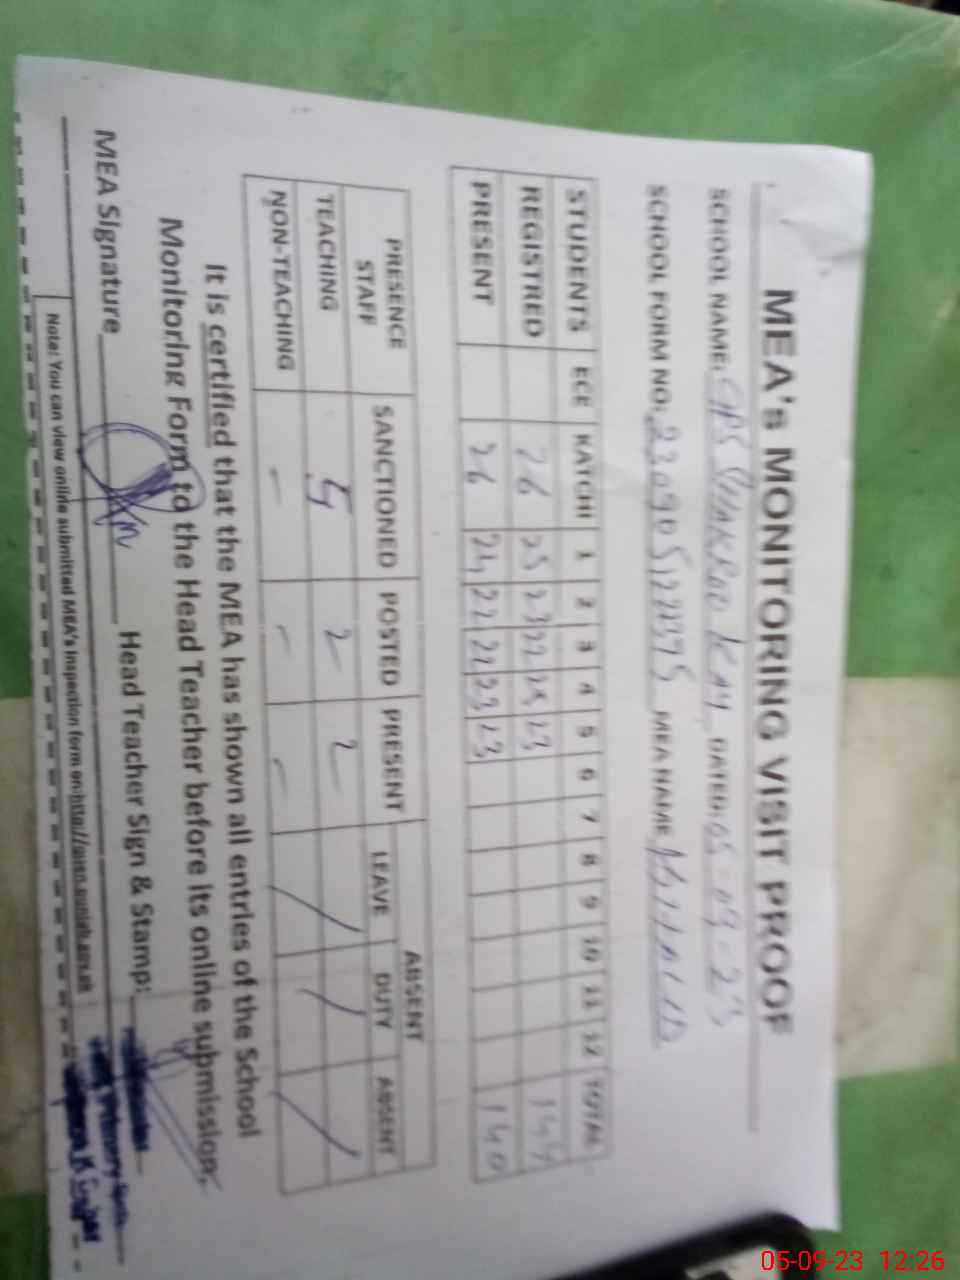 MEA's MONITORING VISIT PROOF
SCHOOL NAME: GPS DATED: 05-09-23
SCHOOL FORM NO: MEA NAME
STUDENTS ECE KATCHI 1 2 3 4 5 6 7 8 9 10 11 12 TOTAL
REGISTRED 26 25 23 22 25 23 144
PRESENT 26 24 22 22 23 23 140
PRESENCE STAFF SANCTIONED POSTED PRESENT ABSENT
LEAVE DUTY ABSENT
TEACHING 5 2 2 / / /
NON-TEACHING - - -
It is certified that the MEA has shown all entries of the School
Monitoring Form to the Head Teacher before its online submission.
MEA Signature Head Teacher Sign & Stamp:
Note: You can view online submitted MEA's Inspection form on:
05-09-23 12:26